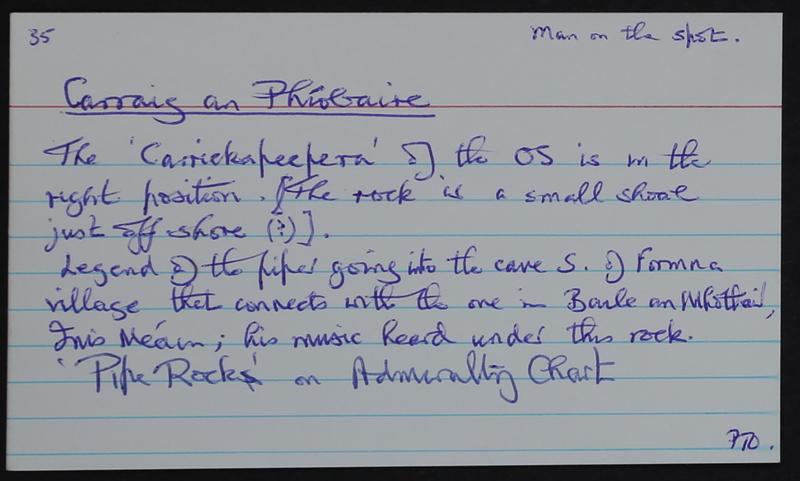 35
Man on the spot.
Carraig an Phíobaire
The 'Carrickapeepera' of the OS is in the
right position. [The rock is a small shoal
just off shore (?)].
Legend of the piper going into the cave S. of Formna
village that connects with the one in
Inis Meáin; his music heard under this rock.
'Pipe Rock' on Admiralty Chart
PTO.